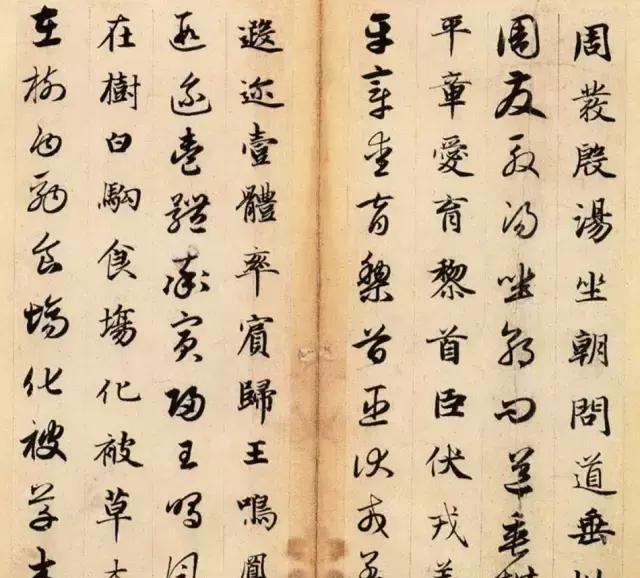 周發殷湯坐朝問道垂
周發殷湯坐朝問道垂
平章愛育黎首臣伏戎
平章愛育黎首臣伏戎
遐迩壹體率賓歸王鳴鳳
遐迩壹體率賓歸王鳴
在樹白駒食塲化被草木
在樹白駒食塲化被草木